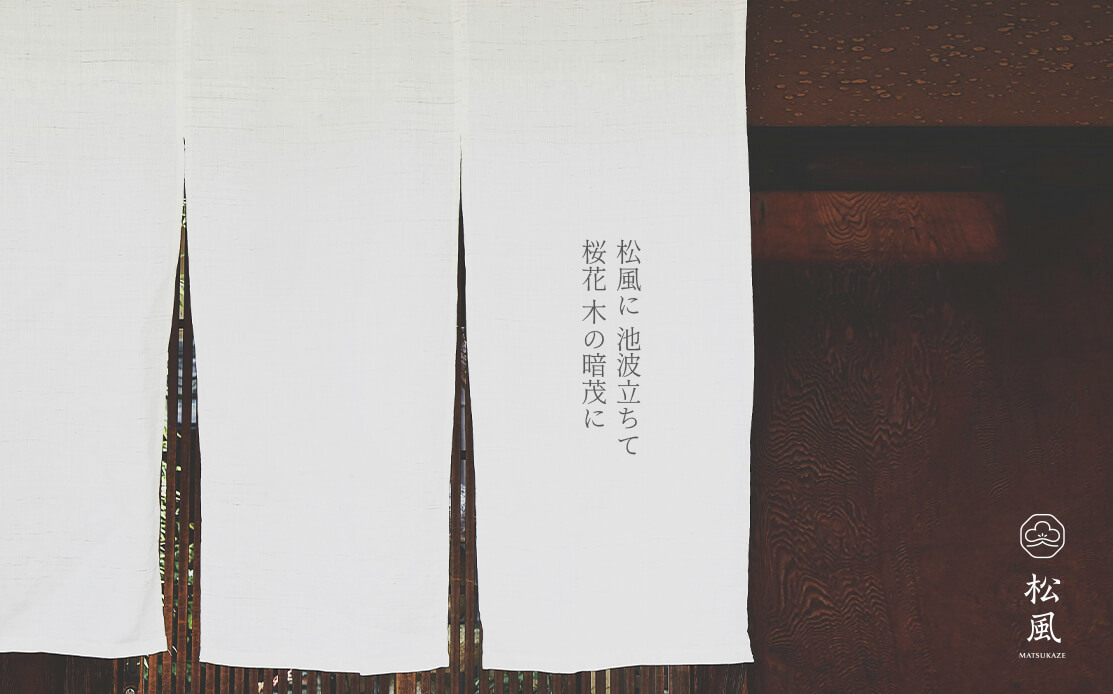 松風に 池波立ちて
桜花 木の暗茂に
松風
MATSUKAZE